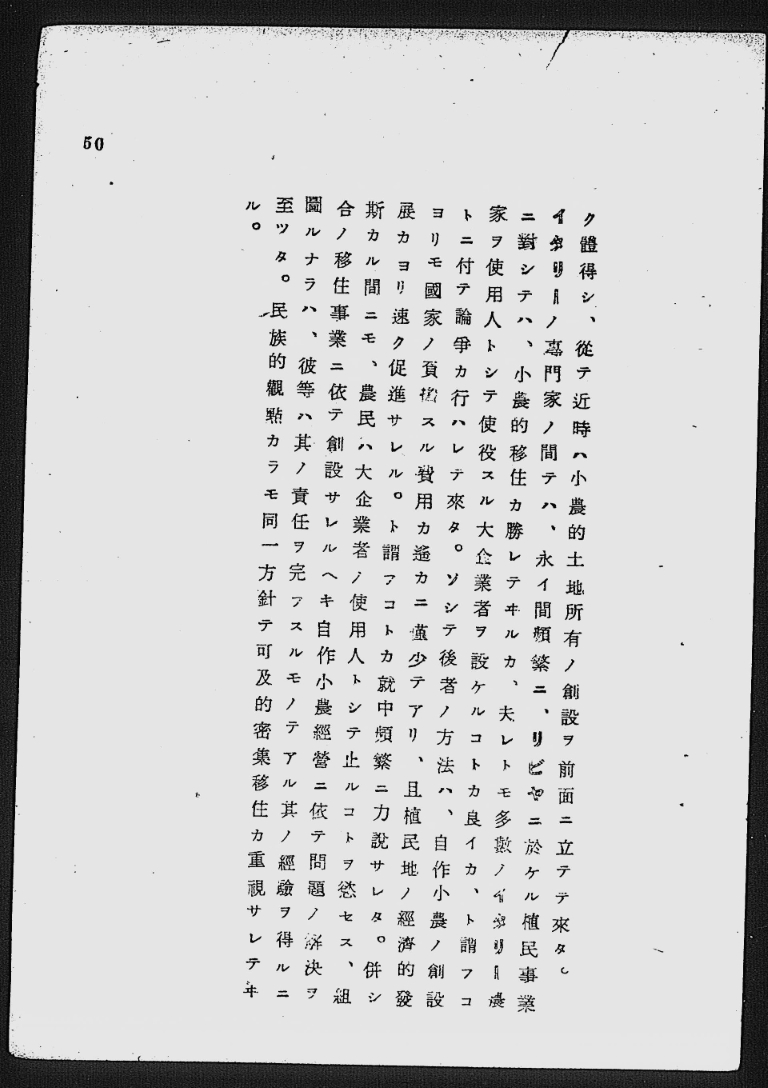 50
ク體得シ、從テ近時ハ小農的土地所有ノ創設ヲ前面ニ立テテ來タ。
イタリーノ專門家ノ間テハ、永イ間頻繁ニ、リビヤニ於ケル植民事業
ニ對シテハ、小農的移住カ勝レテヰルカ、夫レトモ多數ノイタリー農
家ヲ使用人トシテ使役スル大企業者ヲ設ケルコトカ良イカ、ト謂フコ
トニ付テ論爭カ行ハレテ來タ。ソシテ後者ノ方法ハ、自作小農ノ創設
ヨリモ國家ノ負擔スル費用カ遙カニ僅少テアリ、且植民地ノ經濟的發
展カヨリ速ク促進サレル。ト謂フコトカ就中頻繁ニ力說サレタ。併シ
斯カル間ニモ、農民ハ大企業者ノ使用人トシテ止ルコトヲ慾セス、組
合ノ移住事業ニ依テ創設サレルヘキ自作小農經營ニ依テ問題ノ解決ヲ
圖ルナラハ、彼等ハ其ノ責任ヲ完フスルモノテアル其ノ經驗ヲ得ルニ
至ツタ。民族的觀點カラモ同一方針テ可及的密集移住カ重視サレテヰ
ル。